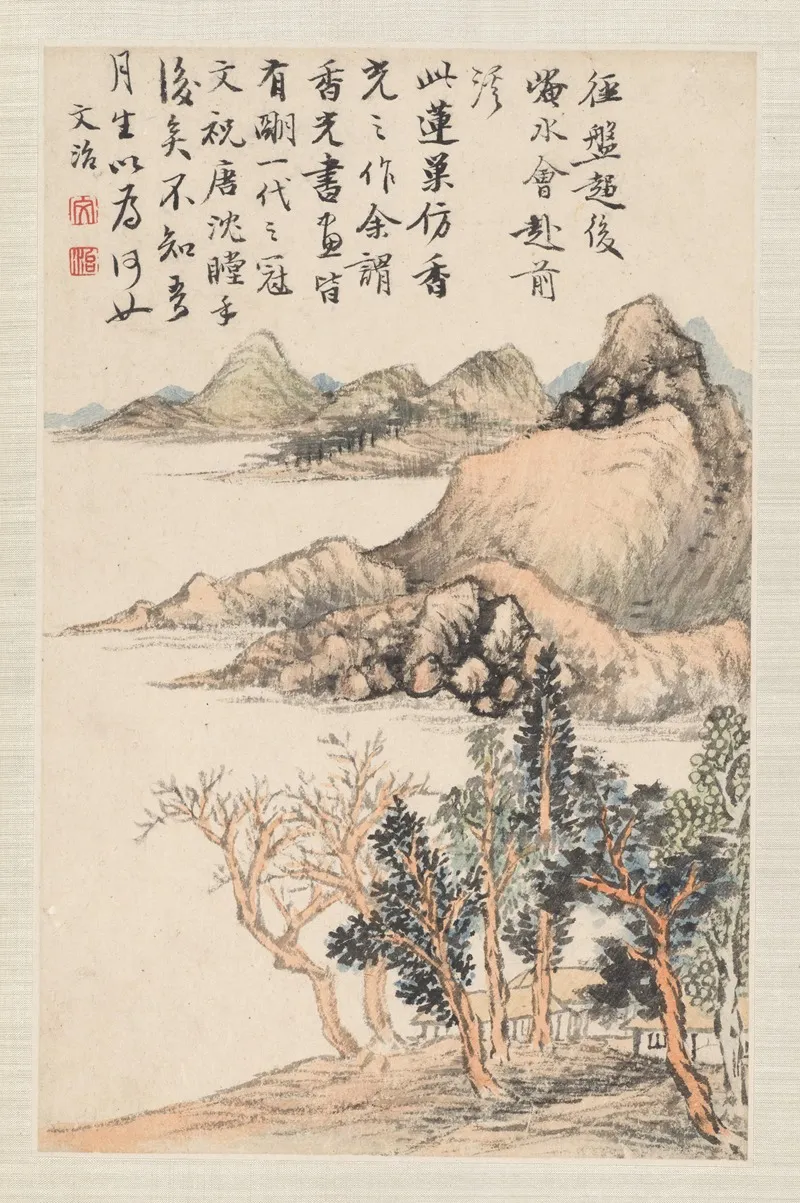 徑盤超後
巘水會赴前
溪
此蓮巢仿香
光之作余謂
香光書畫皆
有朙一代之冠
文祝唐沈瞠乎
後矣不知吾
月生以為何如
文治
文
治